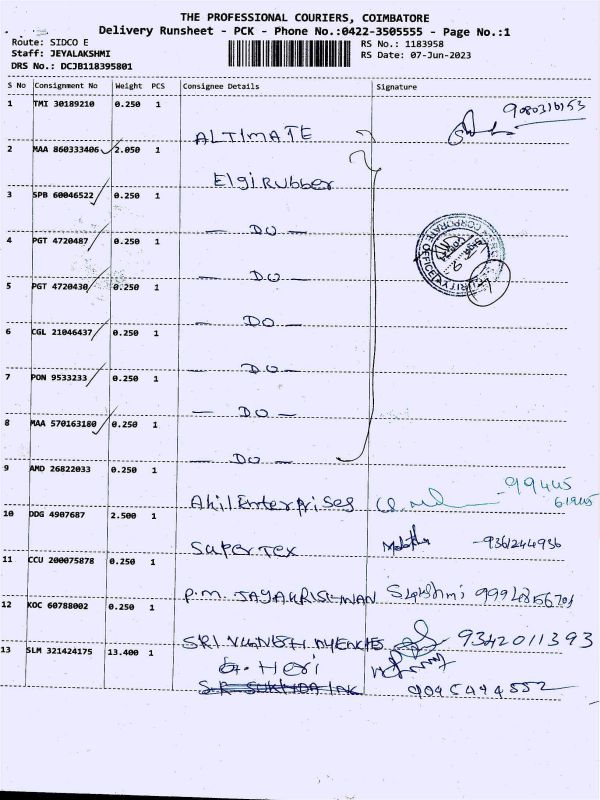 THE PROFESSIONAL COURIERS, COIMBATORE
Delivery Runsheet - PCK - Phone No.:0422-3505555 - Page No.:1
Route: SIDCO E
RS No.: 1183958
Staff: JEYALAKSHMI
RS Date: 07-Jun-2023
DRS No.: DCJB118395801
S No Consignment No Weight PCS Consignee Details Signature
1 TMI 30189210 0.250 1 ALTIMATE 9080316153
2 MAA 860333406 2.050 1 Elgi Rubber
3 SPB 60046522 0.250 1 - DO -
4 PGT 4720487 0.250 1 - DO -
5 PGT 4720430 0.250 1 - DO -
6 CGL 21046437 0.250 1 - DO -
7 PON 9533233 0.250 1 - DO -
8 MAA 570163180 0.250 1 - DO -
CORPORATE OFFICE
9 AMD 26822033 0.250 1 Akil Enterprises 99445
61945
10 DDG 4907687 2.500 1 SuperTex -9361244936
11 CCU 200075878 0.250 1 P.M. JAYAKRISHNAN
12 KOC 60788002 0.250 1 SRI 9342011393
13 SLM 321424175 13.400 1 Heri